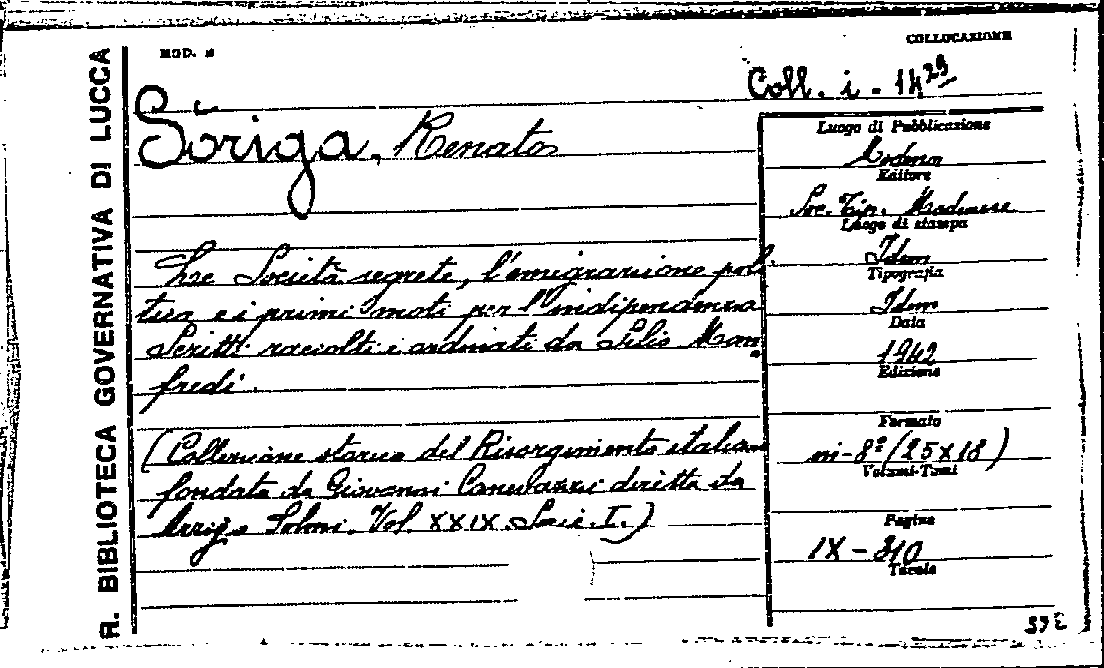 R. BIBLIOTECA GOVERNATIVA DI LUCCA
MOD. 
COLLOCAZIONE
Coll. i - 14 29
Soriga, Renato
Le Società segrete, l'emigrazione poli
tica e i primi moti per l'indipendenza
Scritti raccolti e ordinati da Silio Man
fredi.
(Collezione storica del Risorgimento italiano
fondata da Giovanni Canevazzi diretta da
Arrigo Solmi. Vol. XXIX. Serie. I.)
Luogo di Pubblicazione
Modena
Editore
Soc. Tip. Modenese
Luogo di stampa
Idem
Tipografia
Idem
Data
1942
Edizione
Formato
in-8º (25x18)
Volumi-Tomi
Pagine
IX - 310
Tavole